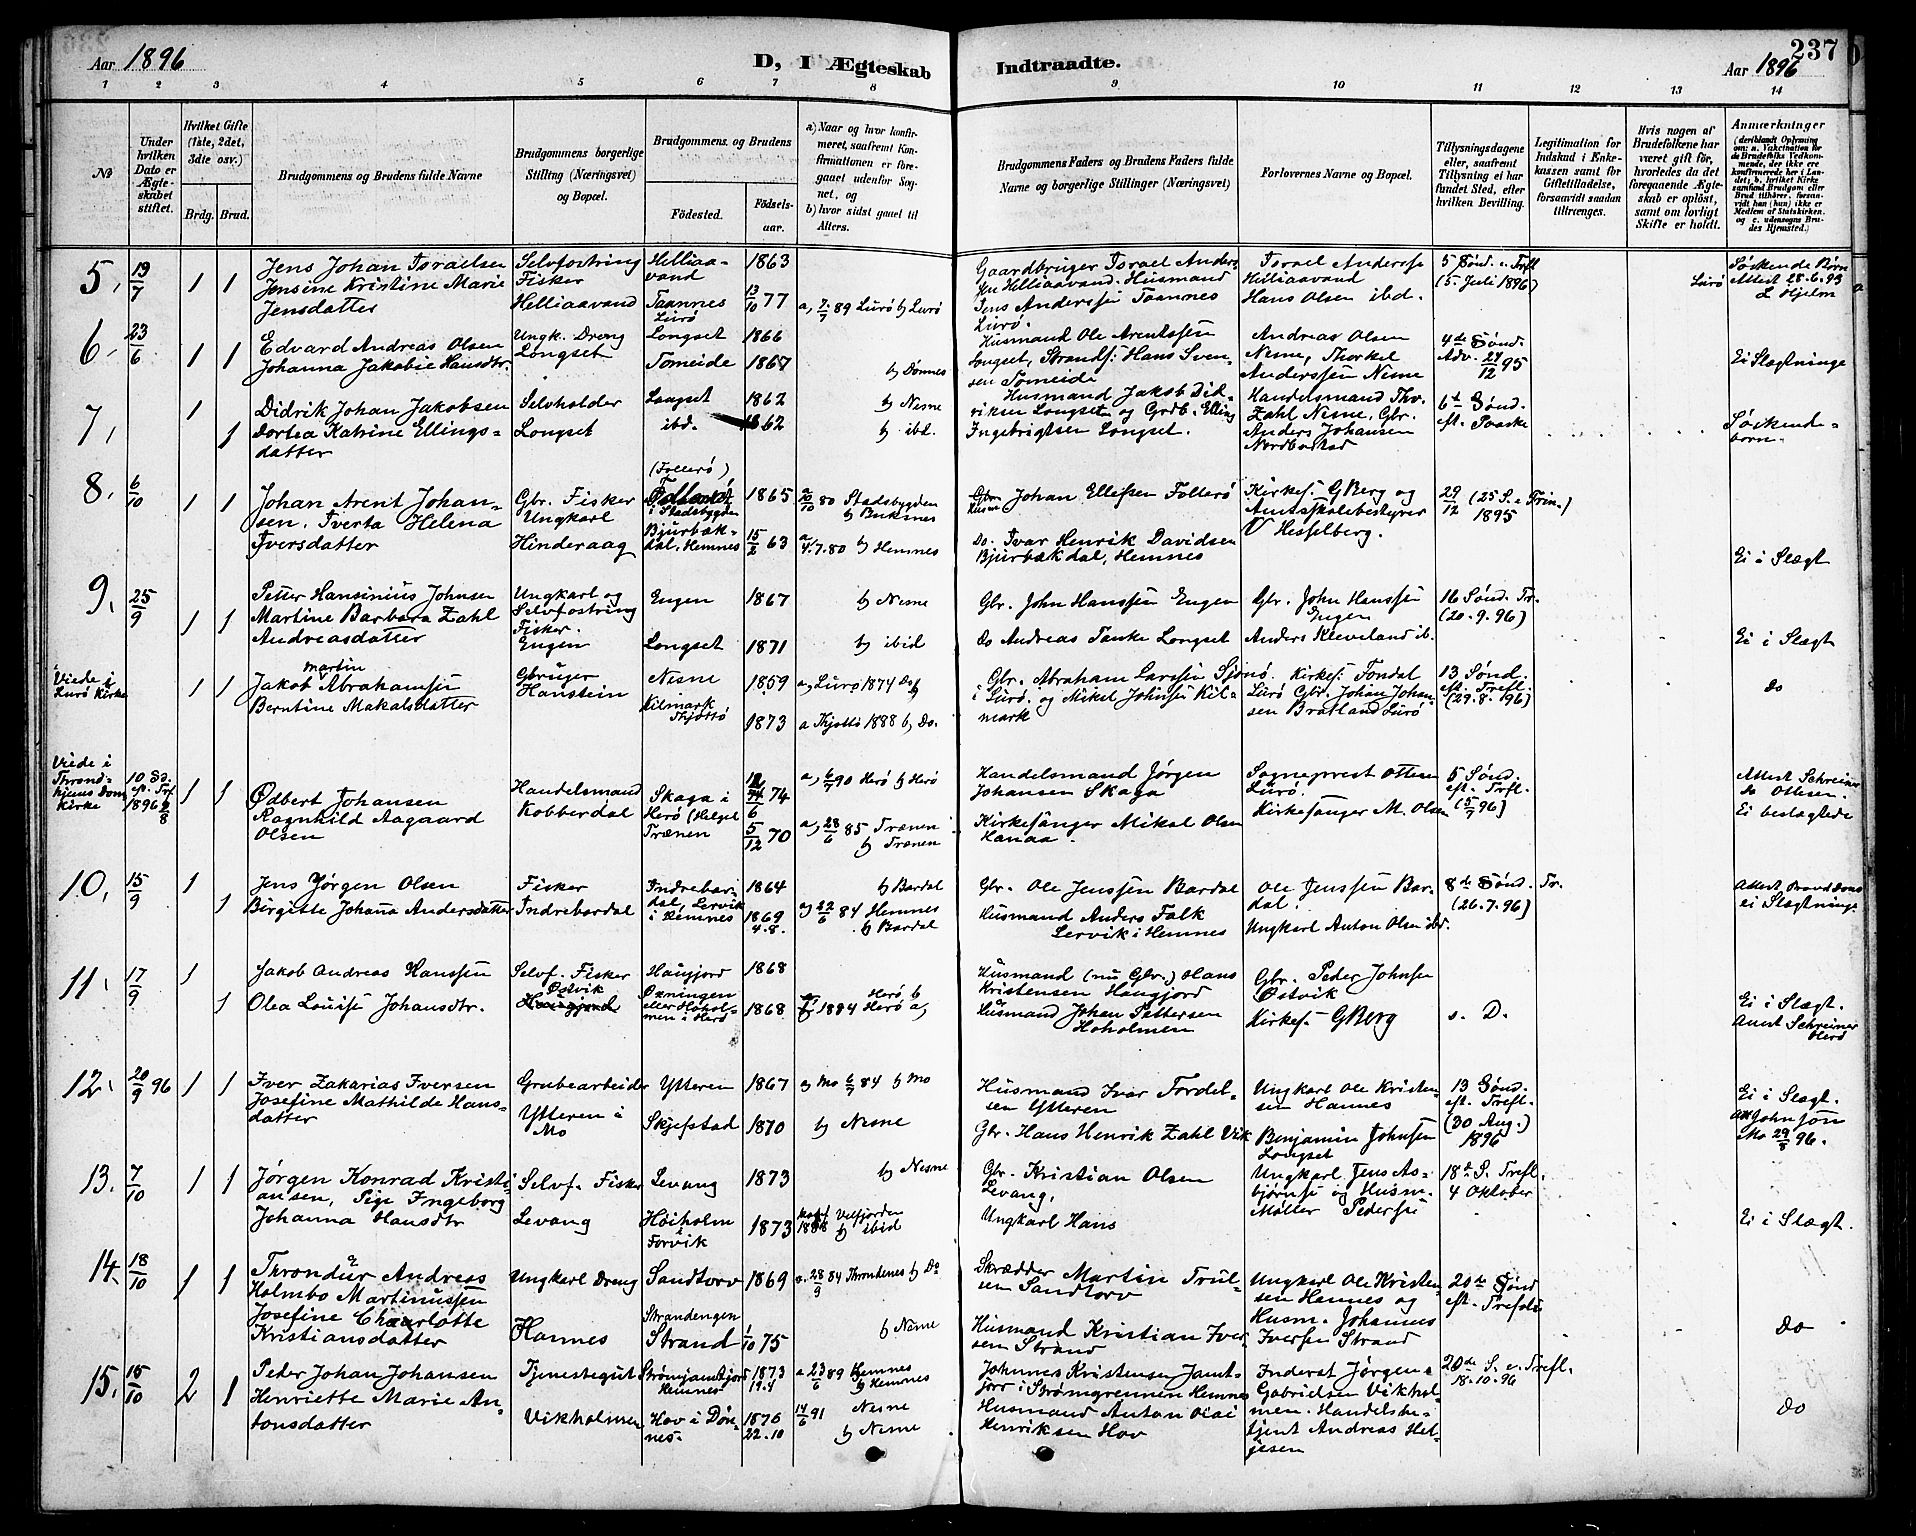 Aar 1896
D, I Ægteskab Indtraadte.
237
Aar 1896
1 2 3 4 5 6 7 8 9 10 11 12 13 14
No
Under hvilken Dato er Ægteskabet stiftet.
Hvilket Gifte (1ste, 2det, 3die osv.)
Brdg. Brud.
Brudgommens og Brudens fulde Navne
Brudgommens borgerlige Stilling (Næringsvei) og Bopæl.
Brudgommens og Brudens
Fødested.
Fødselsaar.
a) Naar og hvor konfirmeret, saafremt Konfirmationen er foregaaet udenfor Sognet, og
b) hvor sidst gaaet til Alters.
Brudgommens Faders og Brudens Faders fulde Navne og borgerlige Stillinger (Næringsvei)
Forlovernes Navne og Bopæl.
Tillysningsdagene eller, saafremt Tillysning ei har fundet Sted, efter hvilken Bevilling.
Legitimation for Indskud i Enkekassen samt for Giftetilladelse, forsaavidt saadan tiltrænges.
Hvis nogen af Brudefolkene har været gift før, hvorledes da det foregaaende Ægteskab er opløst, samt om lovligt Skifte er holdt.
Anmærkninger (deriblandt Oplysning om: a. Vakcination for de Brudefolks Vedkommende, der ikke ere konfirmerede her i Landet; b. hvilket Kirkesamfund Brudgom eller Brud tilhører, forsavidt han (hun) ikke er Medlem af Statskirken, og c. udensogns Brudes Hjemsted.)
5, 19/7 1 1
Jens Johan Israelsen
Jensine Kristine Marie
Jensdatter
Selvfostring
Fisker
Helliaavand
Helliaavand
Taannes
Lurø
1863
13/10 77
a, 2/7 89 Lurø b, Lurø
Gaardbruger Israel Andersen Helliaavand. Husmand
Jens Anderssen Taannes
Lurø.
Israel Anderssen
Helliaavand
Hans Olsen ibd.
5 Sønd. e. Trefl
(5. Juli 1896)
Lurø
Søskende Børn
Attest 28.6.93
L Hjelm
6, 23/6 1 1
Edvard Andreas Olsen
Johanna Jakobie Hansdtr.
Ungk. Dreng
Longset
Longset
Tomeide
1866
1867
b, Dønnes
Husmand Ole Arentssen
Longset, Strands: Hans Svensen Tomeide
Andreas Olsen
Nesne, Thorkel
Anderssen Nesne
4de Sønd.
Adv. 24/12 95
Ei Slægtninge
7, 1 1
Didrik Johan Jakobsen
Dortea Katrine Ellingsdatter
Selvholder
Longset
Longset
ibd.
1862
1862
b, Nesne
b, ibd.
Husmand Jakob Didriksen Longset og Grdb. Elling
Ingebrigtsen Longset.
Handelsmand Thv.
Zahl Nesne, Gbr.
Anders Johansen
6te Sønd.
eft. Paaske
Søskendebørn.
8, 6/10 1 1
Johan Arent Johansen, Iverta Helena
Iversdatter
Gbr. Fisker
Ungkarl
Hinderaag
(Follerø)
i Stadsbygden
Bjurbækdal, Hemnes
1865
15/2 63
a, 80 Stadsbygden
b, Buksnes
a, 4/7. 80 b, Hemnes
Johan Ellefsen Follerø
Do. Ivar Henrik Davidsen
Bjurbækdal, Hemnes
Kirkes. G Berg og
Amtsskolebestyrer
V Hesselberg.
29/12 (25 S. e Trin.)
1895
Ei i Slægt
9, 25/9 1 1
Petter Hansinius Johnsen
Martine Barbara Zahl
Andreasdatter
Ungkarl og
Selvfostring
Fisker.
Engen
Engen
Longset
1867
1871
b, Nesne
b, ibid
Gbr. John Hanssen Engen
Do Andreas Tanke Longset
Gbr. John Hanssen
Engen
Anders Kleveland ib.
16 Sønd. Tr.
(20. 9. 96)
Ei i Slægt
Viede i
Lurø Kirke
1 1
Jakob Martin Abrahamsen
Berntine Makalsdatter
Gbruger
Hanstein
Nesne
Kilmark
Thjøttø
1859
1873
a, Lurø 1874 Do b,
a Thjøttø 1888 b, Do.
Gbr. Abraham Larssen Sjonø.
i Lurø. og Mikel Johnsen Kilmark
Kirkes: Tondal
Lurø Gbr. Johan Johansen Bratland Lurø
13 Sønd.
eft. Trefl.
(29. 8. 196)
do
Viede i
Throndhjems Dom
Kirke
10 Sd.
eft. Trf
1896 2/8
1 1
Ødbert Johansen
Ragnhild Aagaard
Olsen
Handelsmand
Kobberdal
Skaga i
Herø (Helgel
Trænen
12/6 74
5/12 70
a, 6/7 90 Herø b, Herø
a, 28/6 85 Trænen
b, Trænen
Handelsmand Jørgen
Johansen Skaga
Kirkesanger Mikal Olsen
Hanaa.
Sogneprest Ottesen
Lurø.
Kirkesanger M. Olsen
5 Sønd.
eft. Trefl.
(5/7 96)
Attest Schreiner
do Ottesen.
Ei beslægtede
10, 15/9 1 1
Jens Jørgen Olsen
Birgitte Johana Andersdatter
Fisker
Indrebardal
Indrebardal, Lervik
i Hemnes
1864
1869
4.8.
b, Bardal
a, 22/6 84 Hemnes
b, Bardal
Gbr. Ole Jenssen Bardal
Husmand Anders Falk
Lervik i Hemnes
Ole Jenssen Bardal.
Ungkarl Anton Olsen ibd.
8de Sønd. Tr.
(26. 7. 96)
ei Slægtninge
11, 17/9 1 1
Jakob Andreas Hanssen
Olea Louise Johansdtr.
Selvf. Fisker
Østvik
Haugjord
Haugjord
Øxningen
eller Høholmen i Herø
1868
1868
1884 Herø a,
Herø b
Husmand (nu Gbr.) Hans
Kristensen Haugjord
Husmand Johan Pettersen
Høholmen
Gbr. Peder Johnsen
Østvik
Kirkes. G Berg
s. D.
Ei i Slægt.
Attest Schreiner
Herø
12. 20/9 96 1 1
Iver Zakarias Iversen
Josefine Mathilde Hansdatter
Grubearbeider
Ytteren i
Mo
Ytteren
Skjefstad
1867
1870
a, Mo 6/7 84 b, Mo
b, Nesne
Husmand Ivar Tordelsen Ytteren
Gbr. Hans Henrik Zahl Vik
Ungkarl Ole Kristensen Hannes
Benjamin Johnsen
Longset
13 Sønd.
eft. Trefl.
(30 Aug.)
1896
Ei i Slægt.
Att. Johnson
Mo 29/8 96.
13. 7/10 1 1
Jørgen Konrad Kristiansen, Pige Ingeborg
Johanna Hansdtr
Selvf. Fisker
Levang
Levang
Høiholm
i Forvik
1873
1873
b, Nesne
konf Velfjorden
1888 b, ibid
Gbr. Kristian Olsen
Levang,
Ungkarl Hans
Ungkarl Jens Asbjørnsen og Husm.
Møller Pedersen
18de S. Trefl.
4 Oktober
Ei i Slægt.
14. 18/10 1 1
Throndur Andreas
Holmbo Martinussen
Josefine Charlotte
Kristiansdatter
Ungkarl Dreng
Hannes
Sandtorv
Strandengen
Strand
1869
1/10 75
a. 28/9 84 Throndenes b, Do
b, Nesne
Skrædder Martin Trulsen Sandtorv
Husmand Kristian Iversen Strand
Ungkarl Ole Kristensen Hannes og
Husm. Johannes
Iversen Strand
20de Sønd
eft. Trefold.
do
15. 15/10 2 1
Peder Johan Johansen
Henriette Marie Antonsdatter
Tjenestegut
Vikholmen
Hemnes
Hov i Dønnes.
1873
19.4
1876
22. 10
a 23/6 89 Hemnes
b, Hemnes
14/6 91 Nesne
b, Nesne
Johnnes Kristensen Jamtjorr i Strømgrennen Hemnes
Husmand Anton Olai
Henriksen Hov
Inderst Jørgen
Gabrielsen Vikholmen. Handelsbetjent Andreas Helgesen
20de S. e. Trefl.
18. 10. 96
do